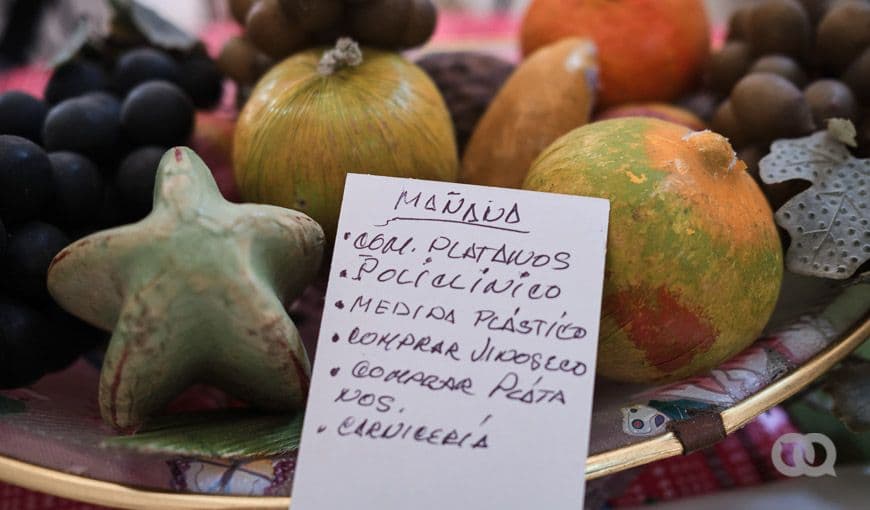 MAÑANA
• COM. PLATANOS
• POLICLÍNICO
• MEDIDA PLÁSTICO
• COMPRAR VINOSECO
• COMPRAR PLÁTA
NOS.
• CARNICERÍA